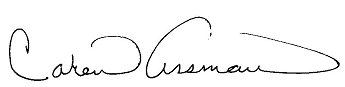 Caren Assman